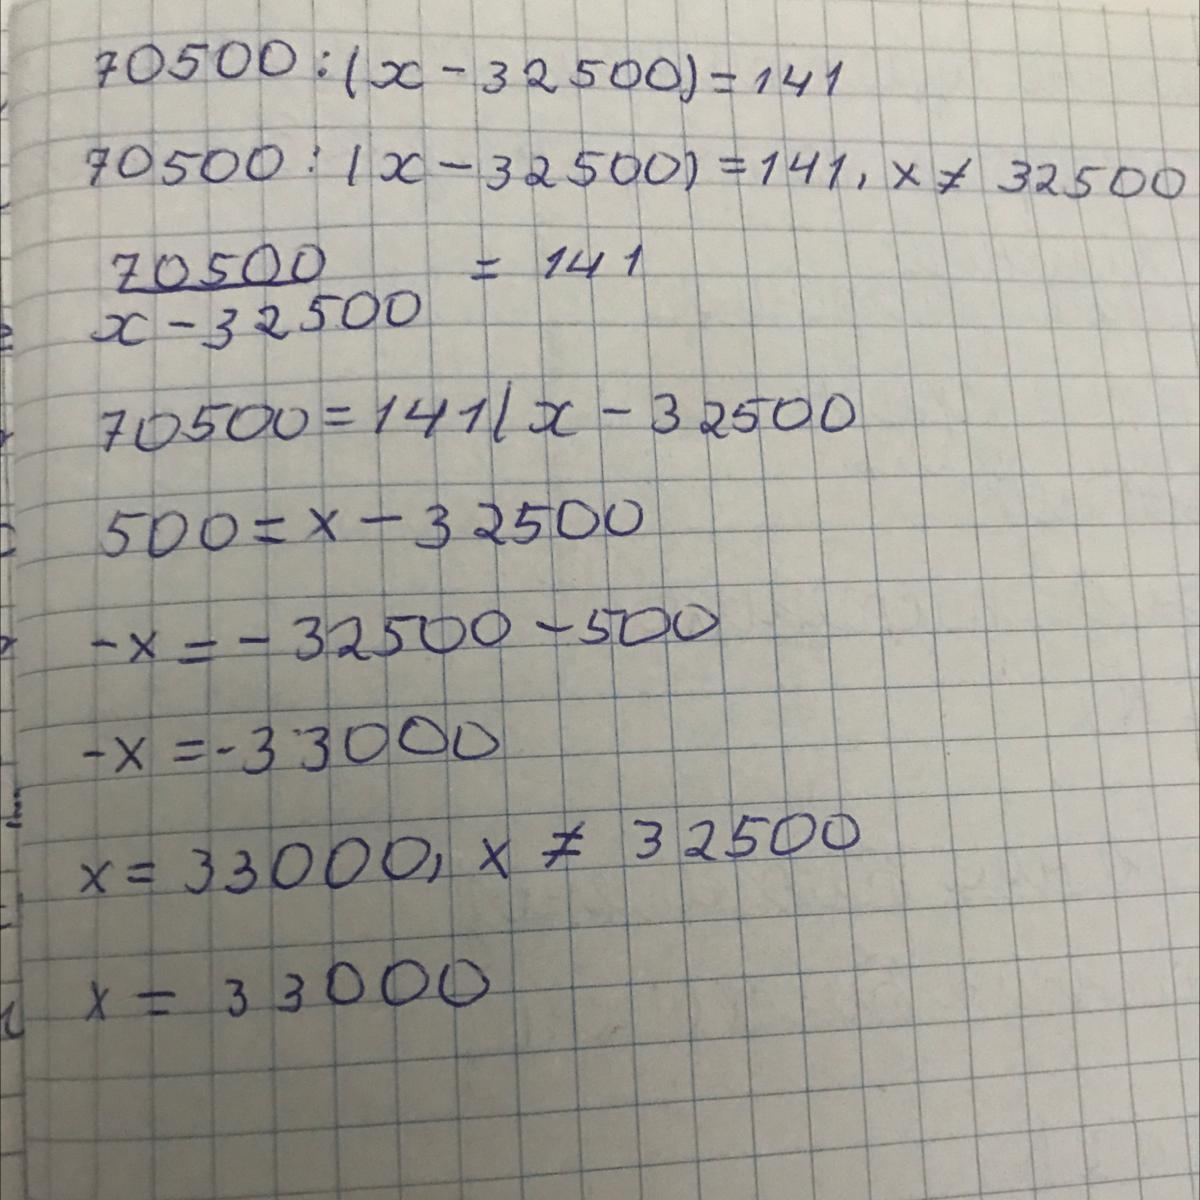 70500:(x-32500)=141
70500:(x-32500)=141, x≠32500
70500
x-32500 = 141
70500=141(x-32500
500=x-32500
-x=-32500-500
-x=-33000
x=33000, x≠32500
x=33000